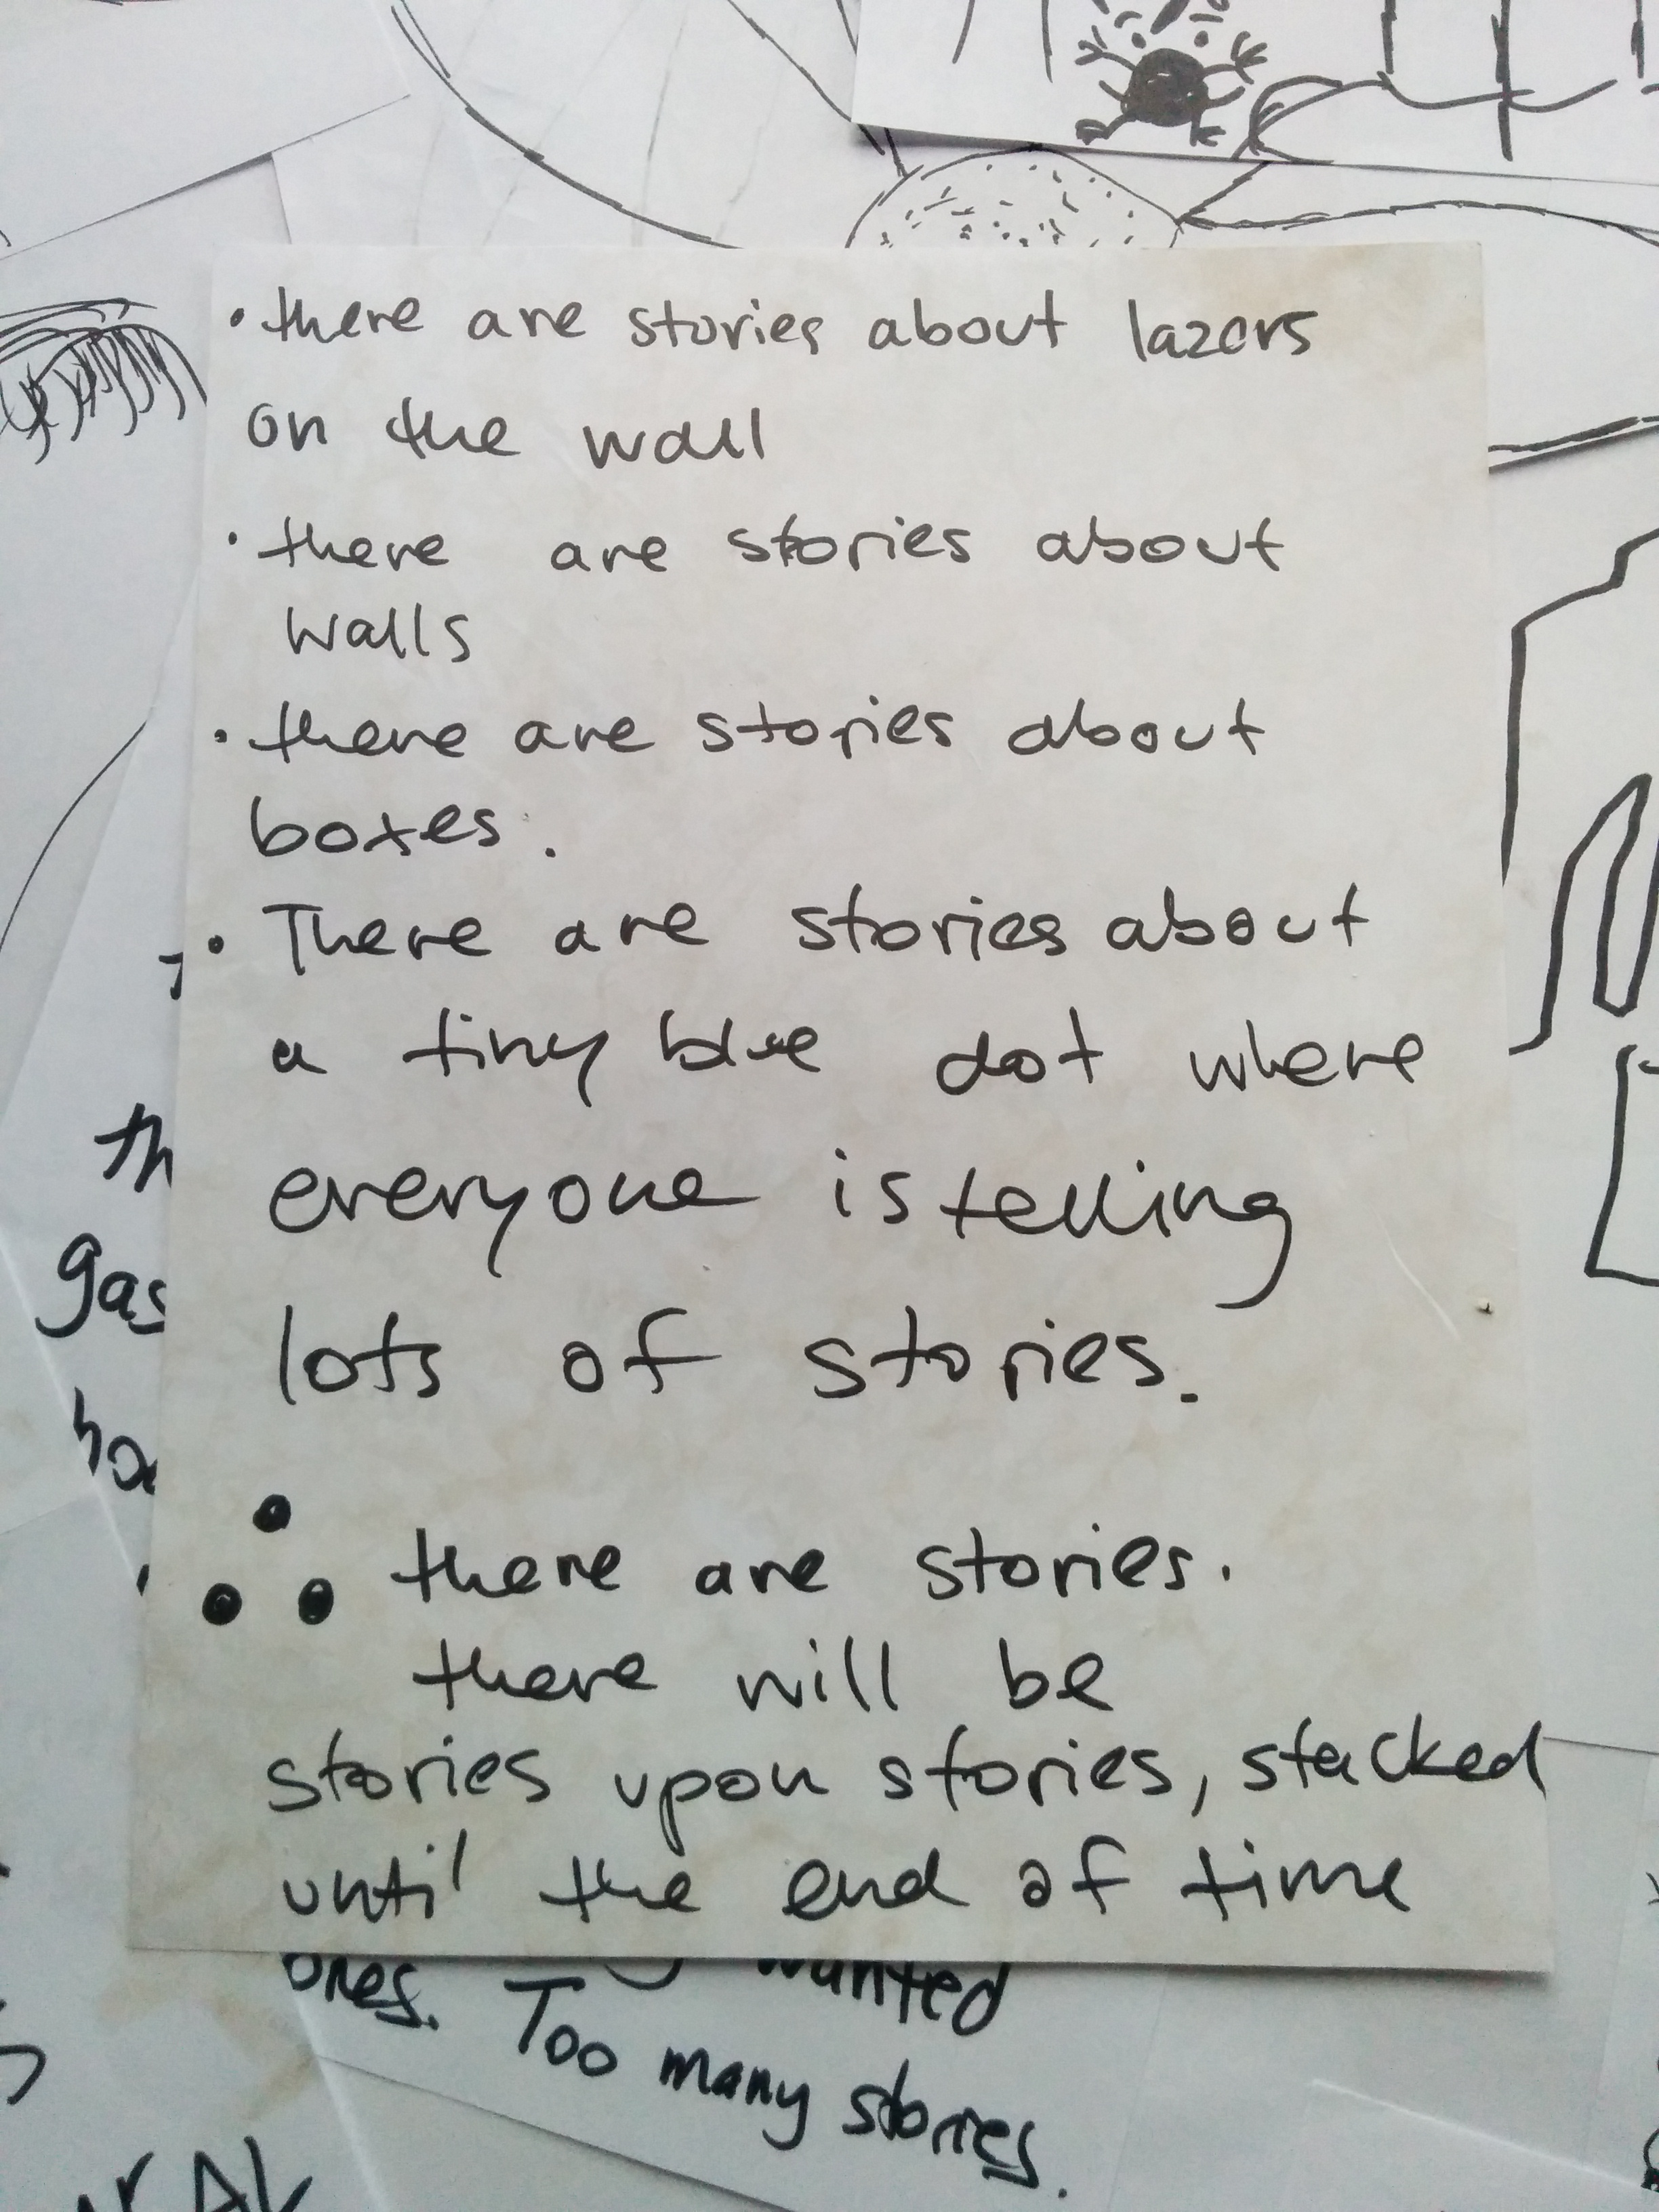 • there are stories about lazers
on the wall
• there are stories about
walls
• there are stories about
boxes.
• There are stories about
a tiny blue dot where
everyone is telling
lots of stories.
∴ there are stories.
there will be
stories upon stories, stacked
until the end of time
th
gas
ha
ones. wanted
Too many stories.